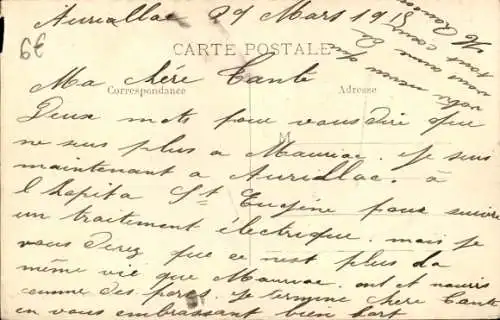 Aurillac 29 Mars 191
6€
CARTE POSTALE
Correspondance
Adresse
M
Ma chére Tante
Deux mots pour vous dire que
ne suis plus a Mauriac. je suis
maintenant a Aurillac. à
l hopita St Eugéne pour suivre
un traitement électrique. mais je
vous direz que ce n'est plus la
même vie que Mauriac. ont et nouris
comme des porcs. Je termine chére Tante
en vous embrassant bien fort
votre neveu qui
vous aime
tout cœur